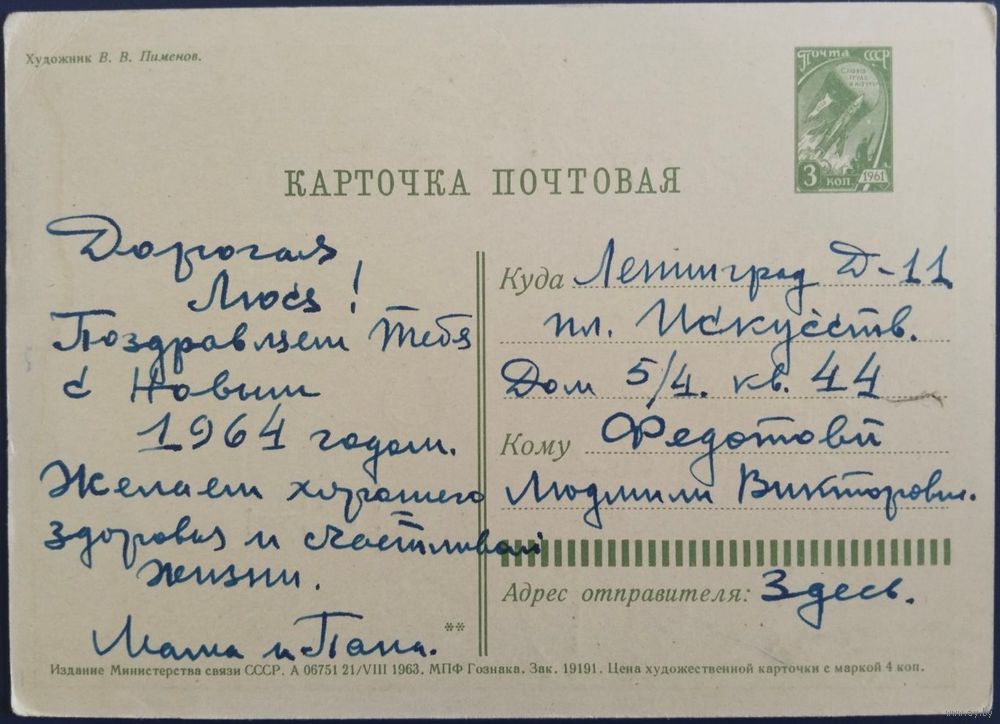 Художник В. В. Пименов.
Почта СССР
СЛАВА
ТРУДУ
3 коп. 1961
КАРТОЧКА ПОЧТОВАЯ
Дорогая
Люся!
Поздравляем Тебя
с Новым
1964 годом.
Желаем хорошего
здоровья и счастливой
жизни.
Мама и Папа.
Куда Ленинград Д-11
пл. Искусств.
Дом 5/4. кв. 44
Кому Федотовй
Людмили Викторовн.
Адрес отправителя: Здесь.
**
Издание Министерства связи СССР. А 06751 21/VIII 1963. МПФ Гознака. Зак. 19191. Цена художественной карточки с маркой 4 коп.